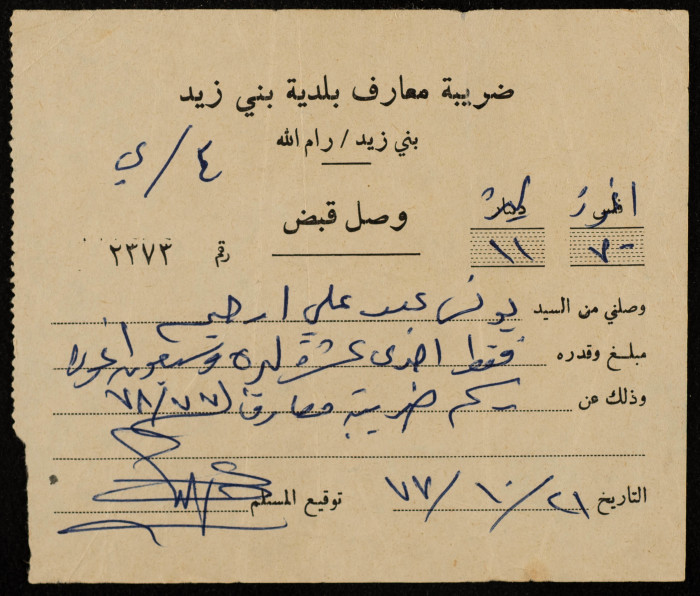 ضريبة معارف بلدية بني زيد
بني زيد / رام الله
٤/ي
وصل قبض
اغورة ليرة
٧٠ ١١
رقم ٢٣٧٣
وصلني من السيد يونس عبد علي ارحيم
مبلغ وقدره فقط احدى عشرة ليره وسبعون اغورا
وذلك عن ضريبة معارف ٧٨/٧٧
التاريخ ٧٧/١٠/٢١ توقيع المستلم